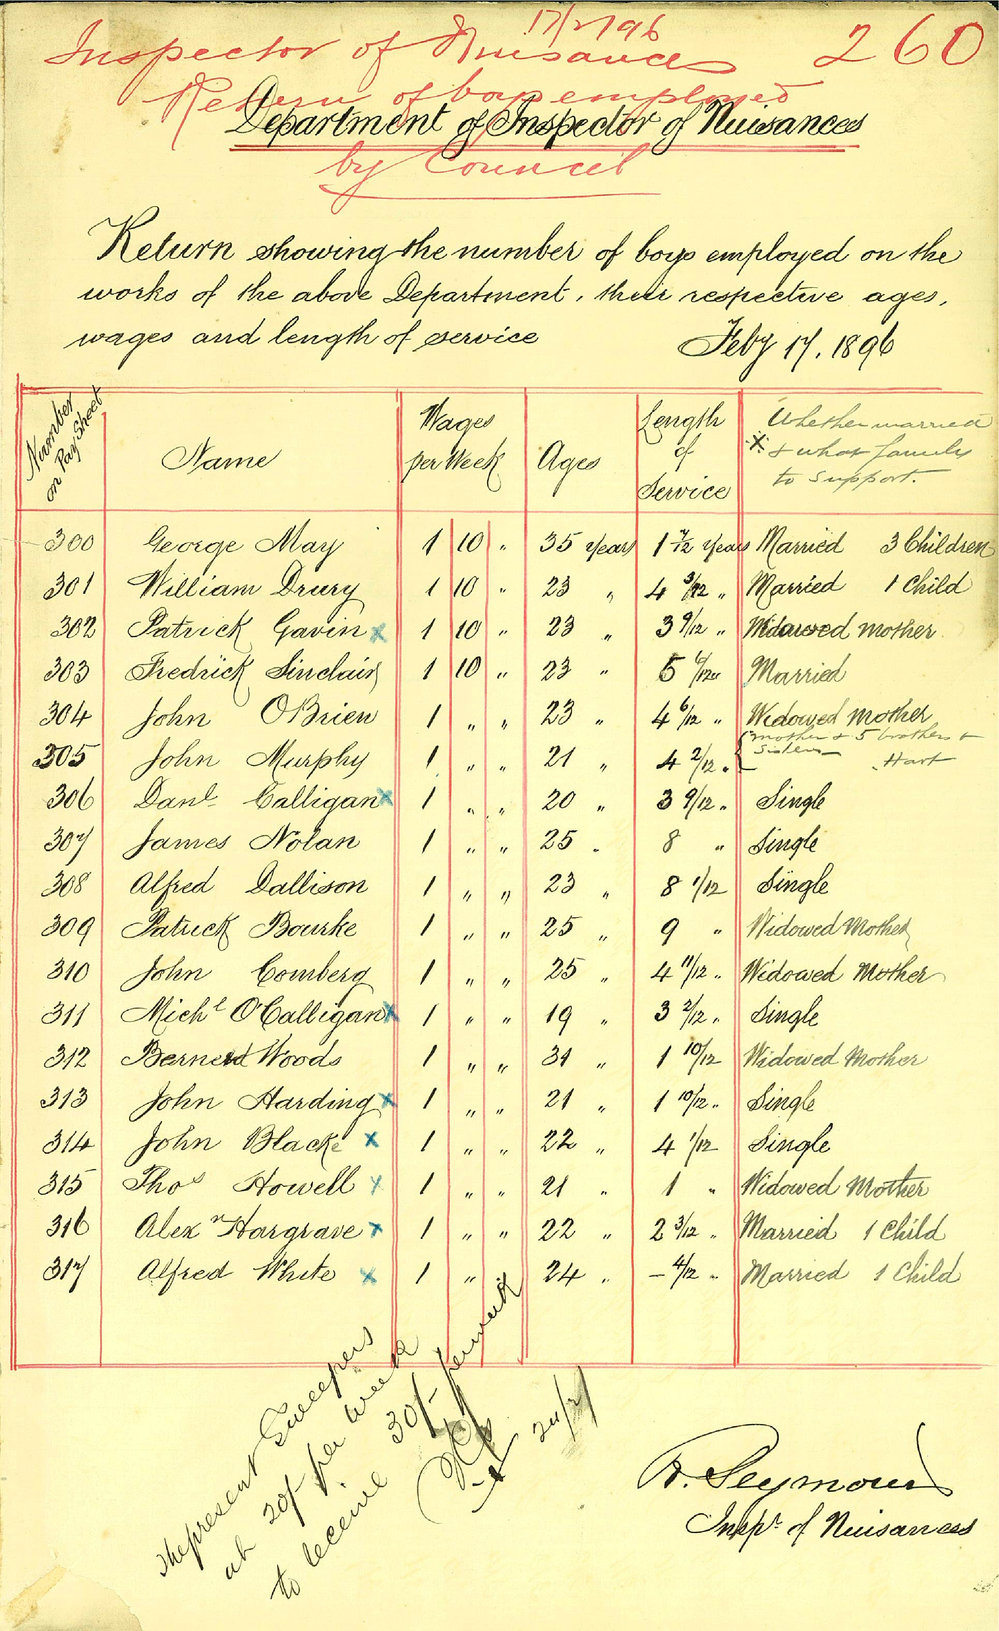 17/2/96
Inspector of Nuisances 260
Return of boys employed
Department of Inspector of Nuisances
by Council
Return showing the number of boys employed on the
works of the above Department, their respective ages,
wages and length of service
Feby 17. 1896
Number on Pay Sheet Name Wages per Week Ages Length of Service Whether married & what family to support.
300 George May 1 10 " 35 years 1 7/12 years Married 3 Children
301 William Drury 1 10 " 23 " 4 3/12 " Married 1 Child
302 Patrick Gavin x 1 10 " 23 " 3 9/12 " Widowed mother
303 Fredrick Sinclair 1 10 " 23 " 5 6/12 " Married
304 John OBrien 1 " " 23 " 4 6/12 " Widowed mother
305 John Murphy 1 " " 21 " 4 2/12 " mother & 5 brothers & Sisters Hart
306 Danl Calligan x 1 " " 20 " 3 9/12 " Single
307 James Nolan 1 " " 25 " 8 " Single
308 Alfred Dallison 1 " " 23 " 8 1/12 Single
309 Patrick Bourke 1 " " 25 " 9 " Widowed Mother
310 John Comberg 1 " " 25 " 4 11/12 " Widowed Mother
311 Michl O'Calligan x 1 " " 19 " 3 2/12 " Single
312 Bernerd Woods 1 " " 31 " 1 10/12 Widowed Mother
313 John Harding x 1 " " 21 " 1 10/12 " Single
314 John Blacke x 1 " " 22 " 4 1/12 Single
315 Thos Howell x 1 " " 21 " 1 " Widowed Mother
316 Alexr Hargrave x 1 " " 22 " 2 3/12 " Married 1 Child
317 Alfred White x 1 " " 24 " - 4/12 " Married 1 Child
The present Sweepers
at 20/- per week
to receive 30/- per week
24/2/
R. Seymour
Inspr. of Nuisances